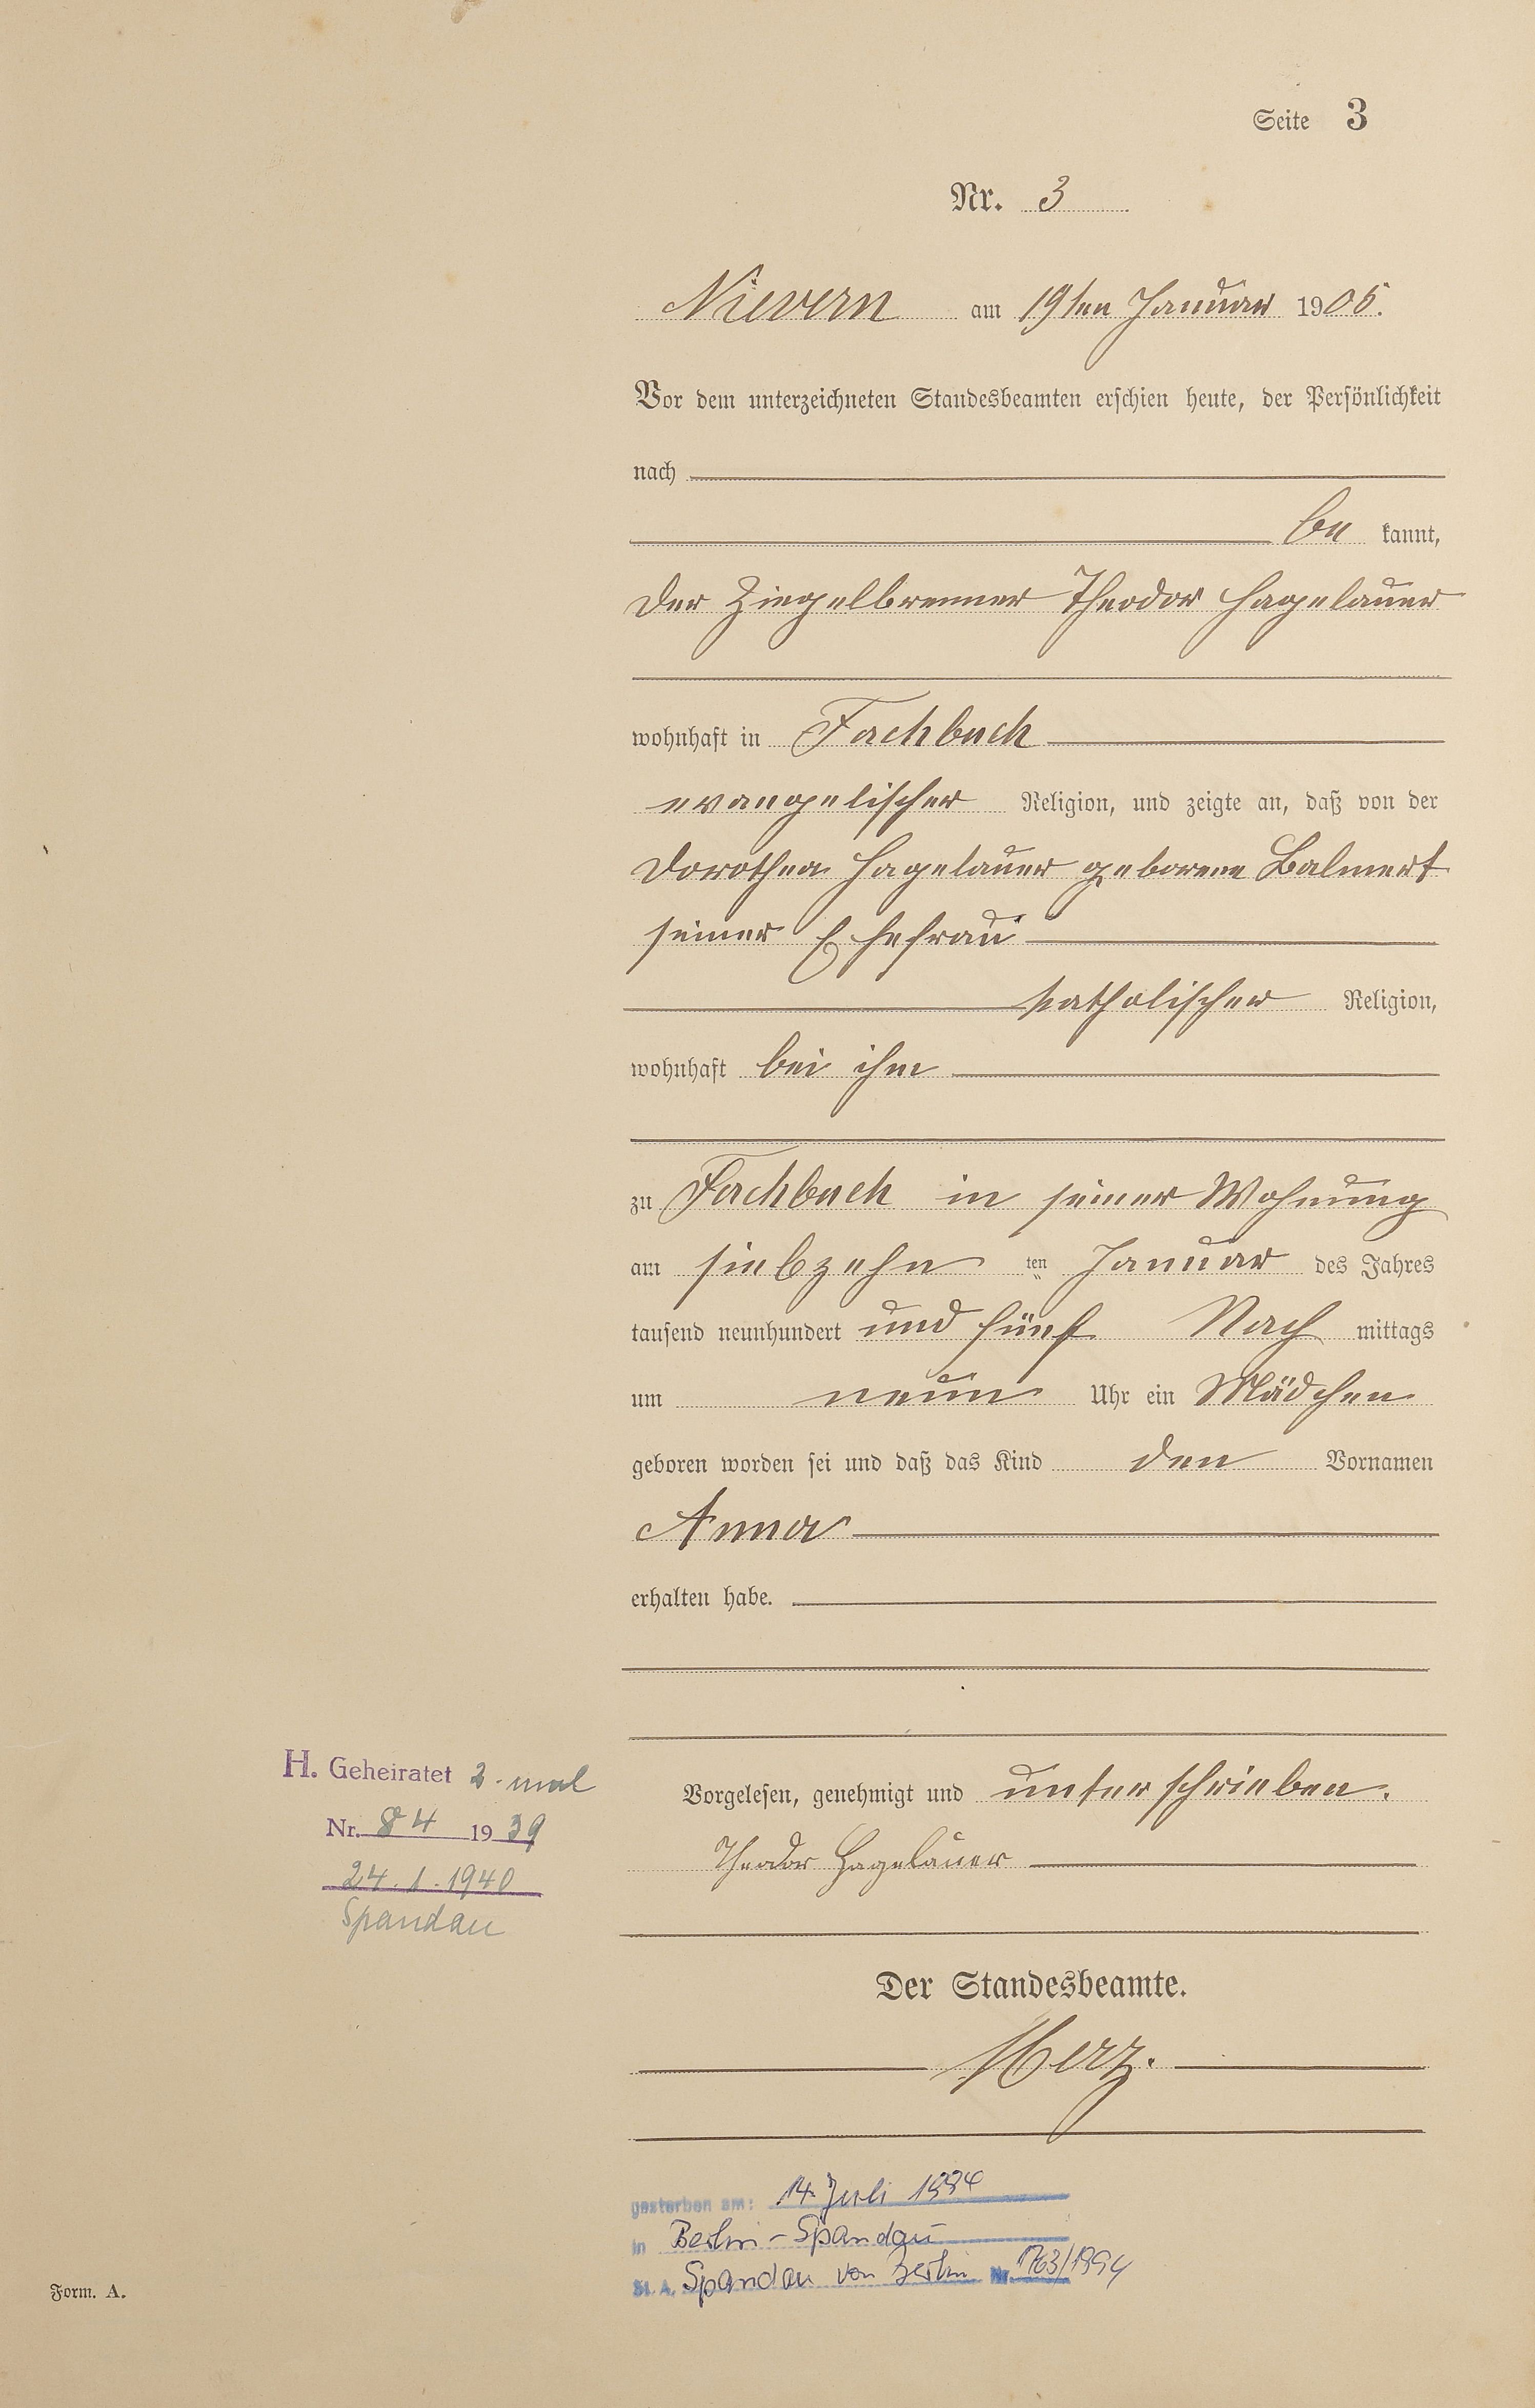 Seite 3
Nr. 3
Nievern am 19ten Januar 1905.
Vor dem unterzeichneten Standesbeamten erschien heute, der Persönlichkeit
nach
be kannt,
der Ziegelbrenner Theodor Hagelauer
wohnhaft in Fachbach
evangelischer Religion, und zeigte an, daß von der
Dorothea Hagelauer geborene Balmert
seiner Ehefrau
katholischer Religion,
wohnhaft bei ihm
zu Fachbach in seiner Wohnung
am siebzehn ten Januar des Jahres
tausend neunhundert und fünf Nach mittags
um neun Uhr ein Mädchen
geboren worden sei und daß das Kind den Vornamen
Anna
erhalten habe.
H. Geheiratet 2. mal
Nr. 84 1939
24.1.1940
Spandau
Vorgelesen, genehmigt und unterschrieben.
Theodor Hagelauer
Der Standesbeamte.
Herz.
gestorben am: 14. Juli 1994
in Berlin-Spandau
St. A. Spandau von Berlin Nr. 1763/1994
Form. A.